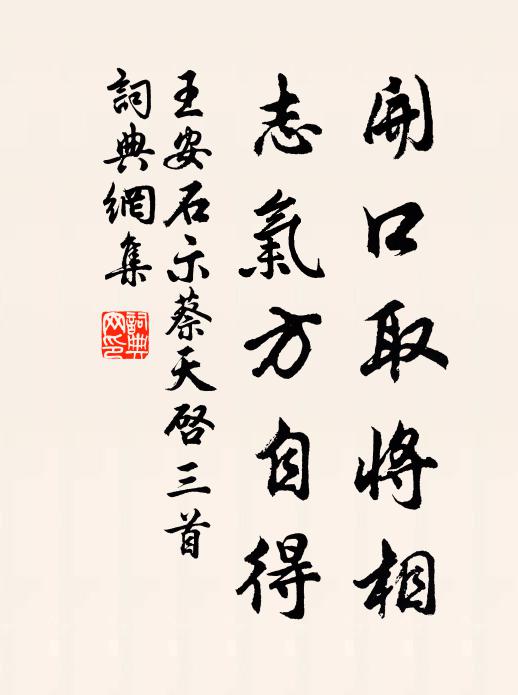 開口取將相
志氣方自得
王安石示蔡天啓三首
詞典網集
詞典網印